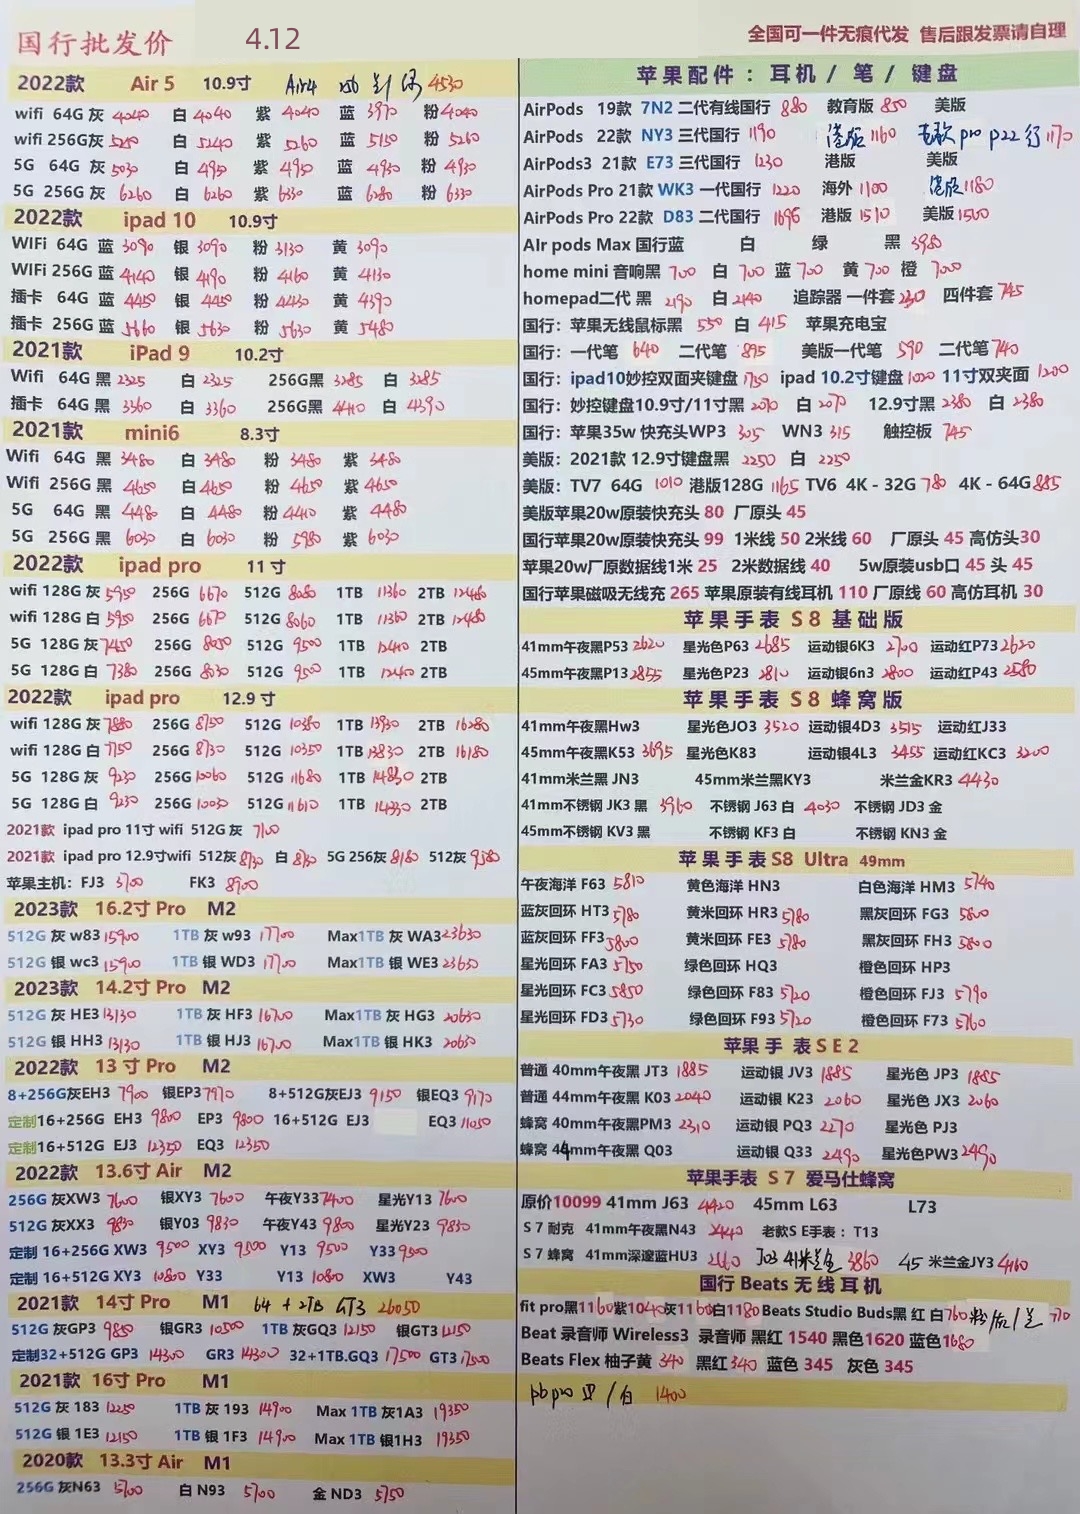 国行批发价 4.12
全国可一件无痕代发 售后跟发票请自理
2022款 Air 5 10.9寸 Air4 256 4530
wifi 64G 灰 4040 白 4040 紫 4040 蓝 3970 粉 4040
wifi 256G 灰 5240 白 5240 紫 5260 蓝 5150 粉 5260
5G 64G 灰 5030 白 4950 紫 4950 蓝 4930 粉 4930
5G 256G 灰 6260 白 6260 紫 6330 蓝 6280 粉 6330
2022款 ipad 10 10.9寸
WIFi 64G 蓝 3090 银 3090 粉 3130 黄 3090
WIFI 256G 蓝 4140 银 4190 粉 4160 黄 4130
插卡 64G 蓝 4450 银 4450 粉 4430 黄 4390
插卡 256G 蓝 5660 银 5630 粉 5630 黄 5480
2021款 iPad 9 10.2寸
Wifi 64G 黑 2325 白 2325 256G黑 3285 白 3285
插卡 64G 黑 3360 白 3360 256G黑 4410 白 4390
2021款 mini6 8.3寸
Wifi 64G 黑 3480 白 3480 粉 3480 紫 3480
Wifi 256G 黑 4650 白 4650 粉 4650 紫 4650
5G 64G 黑 4480 白 4480 粉 4410 紫 4480
5G 256G 黑 6030 白 6030 粉 5980 紫 6030
2022款 ipad pro 11 寸
wifi 128G 灰 5950 256G 6670 512G 8080 1TB 11360 2TB 12480
wifi 128G 白 5950 256G 6670 512G 8060 1TB 11360 2TB 12480
5G 128G 灰 7450 256G 8050 512G 9500 1TB 12440 2TB
5G 128G 白 7380 256G 8030 512G 9500 1TB 12440 2TB
2022款 ipad pro 12.9 寸
wifi 128G 灰 7880 256G 8750 512G 10380 1TB 13930 2TB 16280
wifi 128G 白 7750 256G 8730 512G 10350 1TB 13830 2TB 16180
5G 128G 灰 9230 256G 10060 512G 11680 1TB 14830 2TB
5G 128G 白 9230 256G 10030 512G 11610 1TB 14330 2TB
2021款 ipad pro 11寸 wifi 512G 灰 7100
2021款 ipad pro 12.9寸wifi 512灰 8730 白 8730 5G 256灰 8180 512灰 9580
苹果主机：FJ3 5700 FK3 8900
2023款 16.2寸 Pro M2
512G 灰 w83 15900 1TB 灰 w93 17700 Max1TB 灰 WA3 23630
512G 银 wc3 15900 1TB 银 WD3 17700 Max1TB 银 WE3 23650
2023款 14.2寸 Pro M2
512G 灰 HE3 13130 1TB 灰 HF3 16700 Max1TB 灰 HG3 20630
512G 银 HH3 13130 1TB 银 HJ3 16700 Max1TB 银 HK3 20630
2022款 13 寸 Pro M2
8+256G灰EH3 7900 银EP3 7970 8+512G灰EJ3 9150 银EQ3 9170
定制16+256G EH3 9800 EP3 9800 16+512G EJ3 EQ3 11050
定制16+512G EJ3 12350 EQ3 12350
2022款 13.6寸 Air M2
256G 灰XW3 7600 银XY3 7600 午夜Y33 7400 星光Y13 7600
512G 灰XX3 9830 银Y03 9830 午夜Y43 9800 星光Y23 9830
定制 16+256G XW3 9500 XY3 9500 Y13 9500 Y33 9500
定制 16+512G XY3 10800 Y33 Y13 10800 XW3 Y43
2021款 14寸 Pro M1 64 + 2TB GT3 26050
512G 灰GP3 9850 银GR3 10500 1TB 灰GQ3 12150 银GT3 12150
定制32+512G GP3 14300 GR3 14300 32+1TB.GQ3 17500 GT3 17500
2021款 16寸 Pro M1
512G 灰 183 12250 1TB 灰 193 14900 Max 1TB 灰1A3 19350
512G 银 1E3 12150 1TB 银 1F3 14900 Max 1TB 银1H3 19350
2020款 13.3寸 Air M1
256G 灰N63 5700 白 N93 5700 金 ND3 5750
苹果配件：耳机 / 笔 / 键盘
AirPods 19款 7N2 二代有线国行 880 教育版 850 美版
AirPods 22款 NY3 三代国行 1190 港版 1160 pro p22 1170
AirPods3 21款 E73 三代国行 1230 港版 美版
AirPods Pro 21款 WK3 一代国行 1220 海外 1100 港版 1180
AirPods Pro 22款 D83 二代国行 1695 港版 1510 美版 1500
AIr pods Max 国行蓝 白 绿 黑 3980
home mini 音响黑 700 白 700 蓝 700 黄 700 橙 700
homepad二代 黑 2190 白 2140 追踪器 一件套 230 四件套 745
国行：苹果无线鼠标黑 550 白 415 苹果充电宝
国行：一代笔 640 二代笔 895 美版一代笔 590 二代笔 740
国行：ipad10妙控双面夹键盘 1750 ipad 10.2寸键盘 1020 11寸双夹面 1200
国行：妙控键盘10.9寸/11寸黑 2070 白 2070 12.9寸黑 2380 白 2380
国行：苹果35w 快充头WP3 305 WN3 315 触控板 745
美版：2021款 12.9寸键盘黑 2250 白 2250
美版：TV7 64G 1010 港版128G 1165 TV6 4K - 32G 780 4K - 64G 885
美版苹果20w原装快充头 80 厂原头 45
国行苹果20w原装快充头 99 1米线 50 2米线 60 厂原头 45 高仿头30
苹果20w厂原数据线1米 25 2米数据线 40 5w原装usb口 45 头 45
国行苹果磁吸无线充 265 苹果原装有线耳机 110 厂原线 60 高仿耳机 30
苹果手表 S8 基础版
41mm午夜黑P53 2620 星光色P63 2685 运动银6K3 2700 运动红P73 2620
45mm午夜黑P13 2855 星光色P23 2810 运动银6n3 2800 运动红P43 2580
苹果手表 S8 蜂窝版
41mm午夜黑Hw3 星光色JO3 3520 运动银4D3 3515 运动红J33
45mm午夜黑K53 3695 星光色K83 运动银4L3 3455 运动红KC3 3200
41mm米兰黑 JN3 45mm米兰黑KY3 米兰金KR3 4430
41mm不锈钢 JK3 黑 3960 不锈钢 J63 白 4030 不锈钢 JD3 金
45mm不锈钢 KV3 黑 不锈钢 KF3 白 不锈钢 KN3 金
苹果手表S8 Ultra 49mm
午夜海洋 F63 5810 黄色海洋 HN3 白色海洋 HM3 5740
蓝灰回环 HT3 5780 黄米回环 HR3 5780 黑灰回环 FG3 5800
蓝灰回环 FF3 5800 黄米回环 FE3 5780 黑灰回环 FH3 5800
星光回环 FA3 5750 绿色回环 HQ3 橙色回环 HP3
星光回环 FC3 5850 绿色回环 F83 5720 橙色回环 FJ3 5790
星光回环 FD3 5730 绿色回环 F93 5720 橙色回环 F73 5760
苹果手表SE2
普通 40mm午夜黑 JT3 1885 运动银 JV3 1885 星光色 JP3 1885
普通 44mm午夜黑 K03 2040 运动银 K23 2060 星光色 JX3 2060
蜂窝 40mm午夜黑PM3 2310 运动银 PQ3 2270 星光色 PJ3
蜂窝 44mm午夜黑 Q03 运动银 Q33 2490 星光色PW3 2490
苹果手表 S7 爱马仕蜂窝
原价10099 41mm J63 4420 45mm L63 L73
S 7 耐克 41mm午夜黑N43 2440 老款S E手表：T13
S 7 蜂窝 41mm深邃蓝HU3 2660 J03 41米兰金 3860 45 米兰金JY3 4160
国行 Beats 无线耳机
fit pro黑1160紫1040灰1160白1180 Beats Studio Buds黑 红 白760 710
Beat 录音师 Wireless3 录音师 黑红 1540 黑色1620 蓝色1680
Beats Flex 柚子黄 340 黑红 340 蓝色 345 灰色 345
pb pro 白 1400